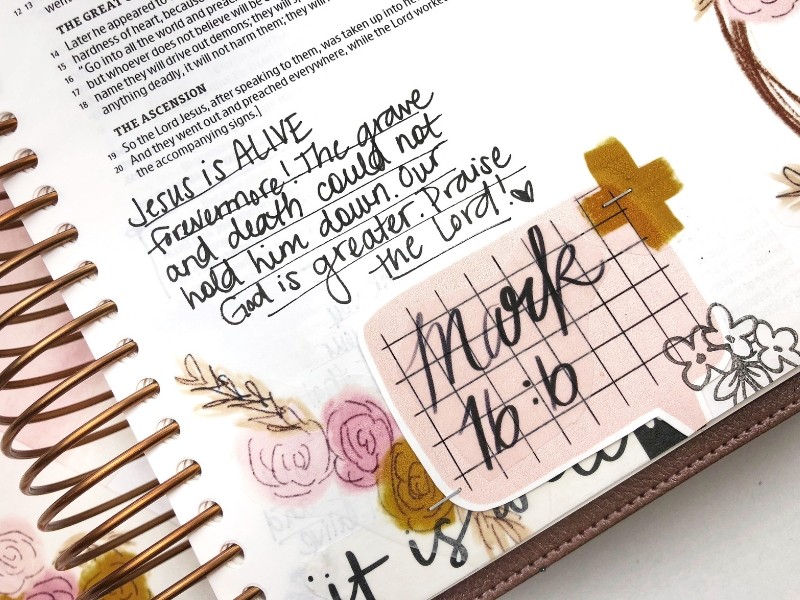 12 13
THE GREAT
14 Later he appeared to
15 hardness of heart, because
16 "Go into all the world and preac
17 but whoever does not believe will be
18 name they will drive out demons; they will
anything deadly, it will not harm them; they
THE ASCENSION
19 So the Lord Jesus, after speaking to them, was taken up into
20 And they went out and preached everywhere, while the Lord worked
the accompanying signs.]
Jesus is ALIVE
forevermore! The grave
and death could not
hold him down. Our
God is greater. Praise
the Lord!
Mark
16:6
it is